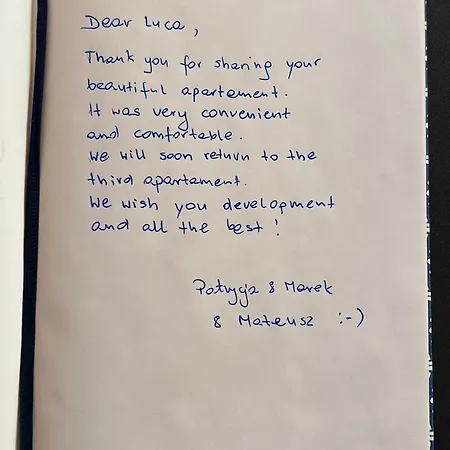 Dear Luca,
Thank you for sharing your
beautiful apartement.
It was very convenient
and comfortable.
We will soon return to the
third apartement.
We wish you development
and all the best!
Patrycja & Marek
& Mateusz :-)